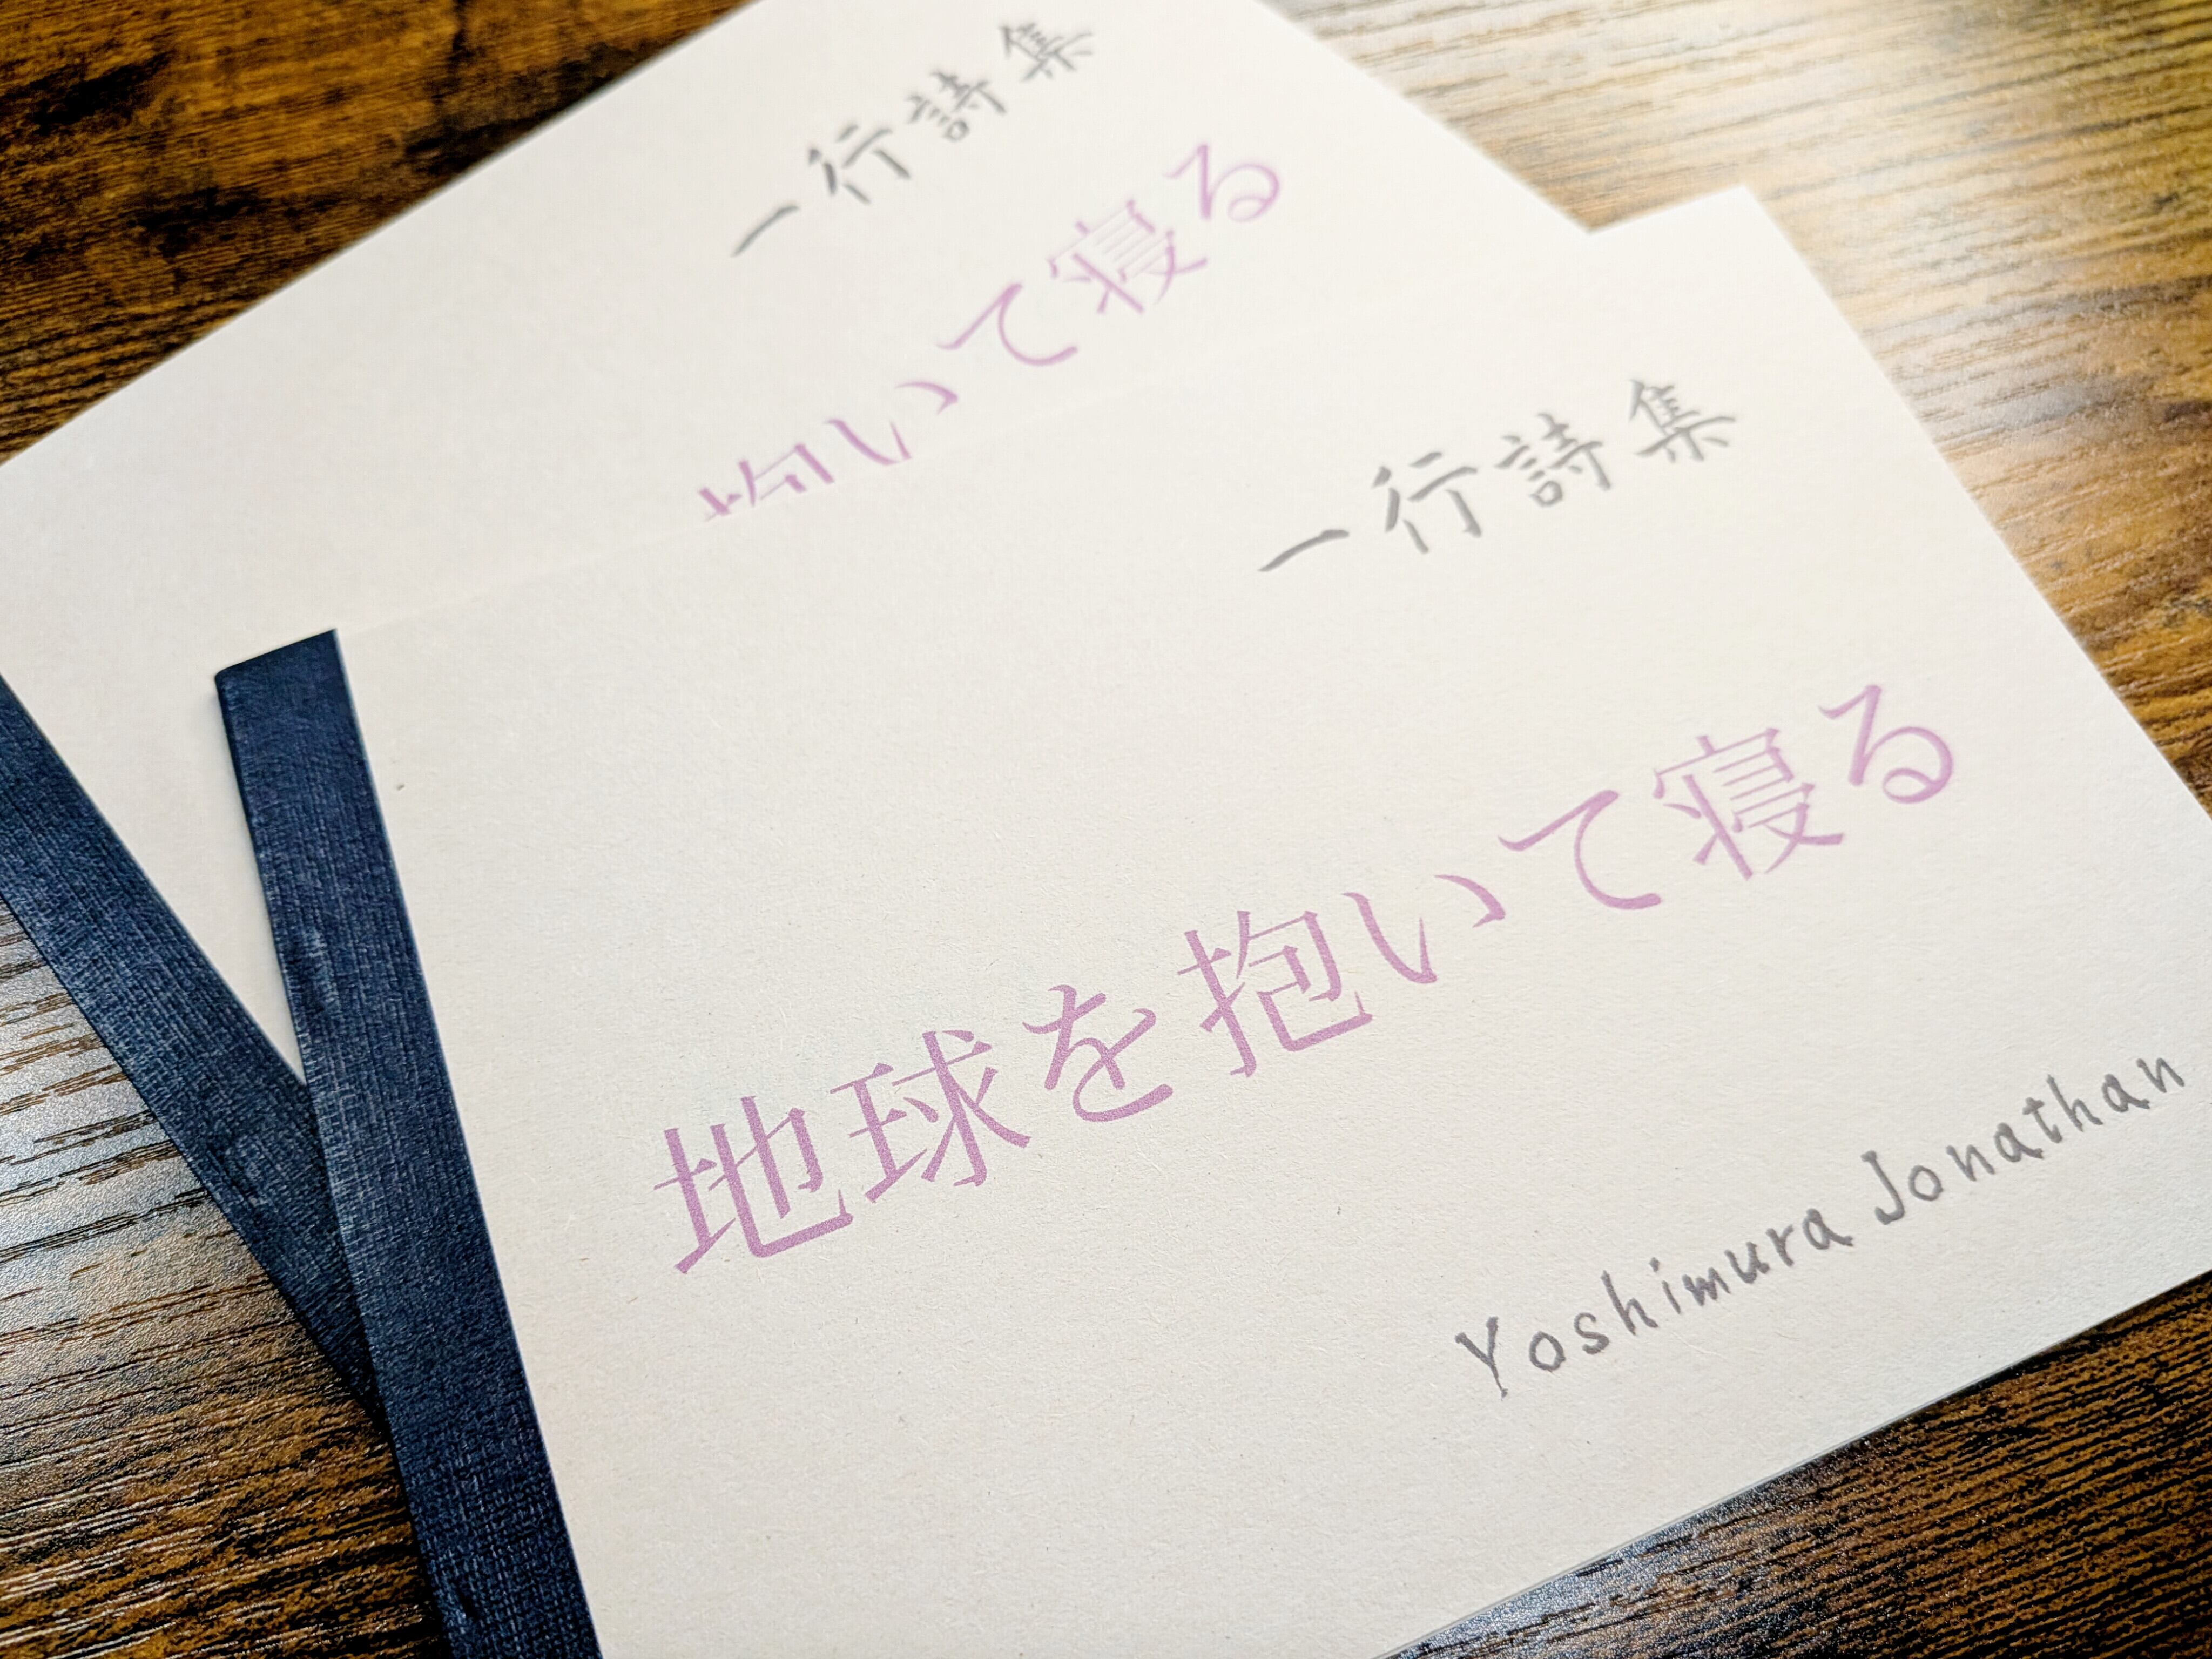 一行詩集
抱いて寝る
一行詩集
地球を抱いて寝る
Yoshimura Jonathan